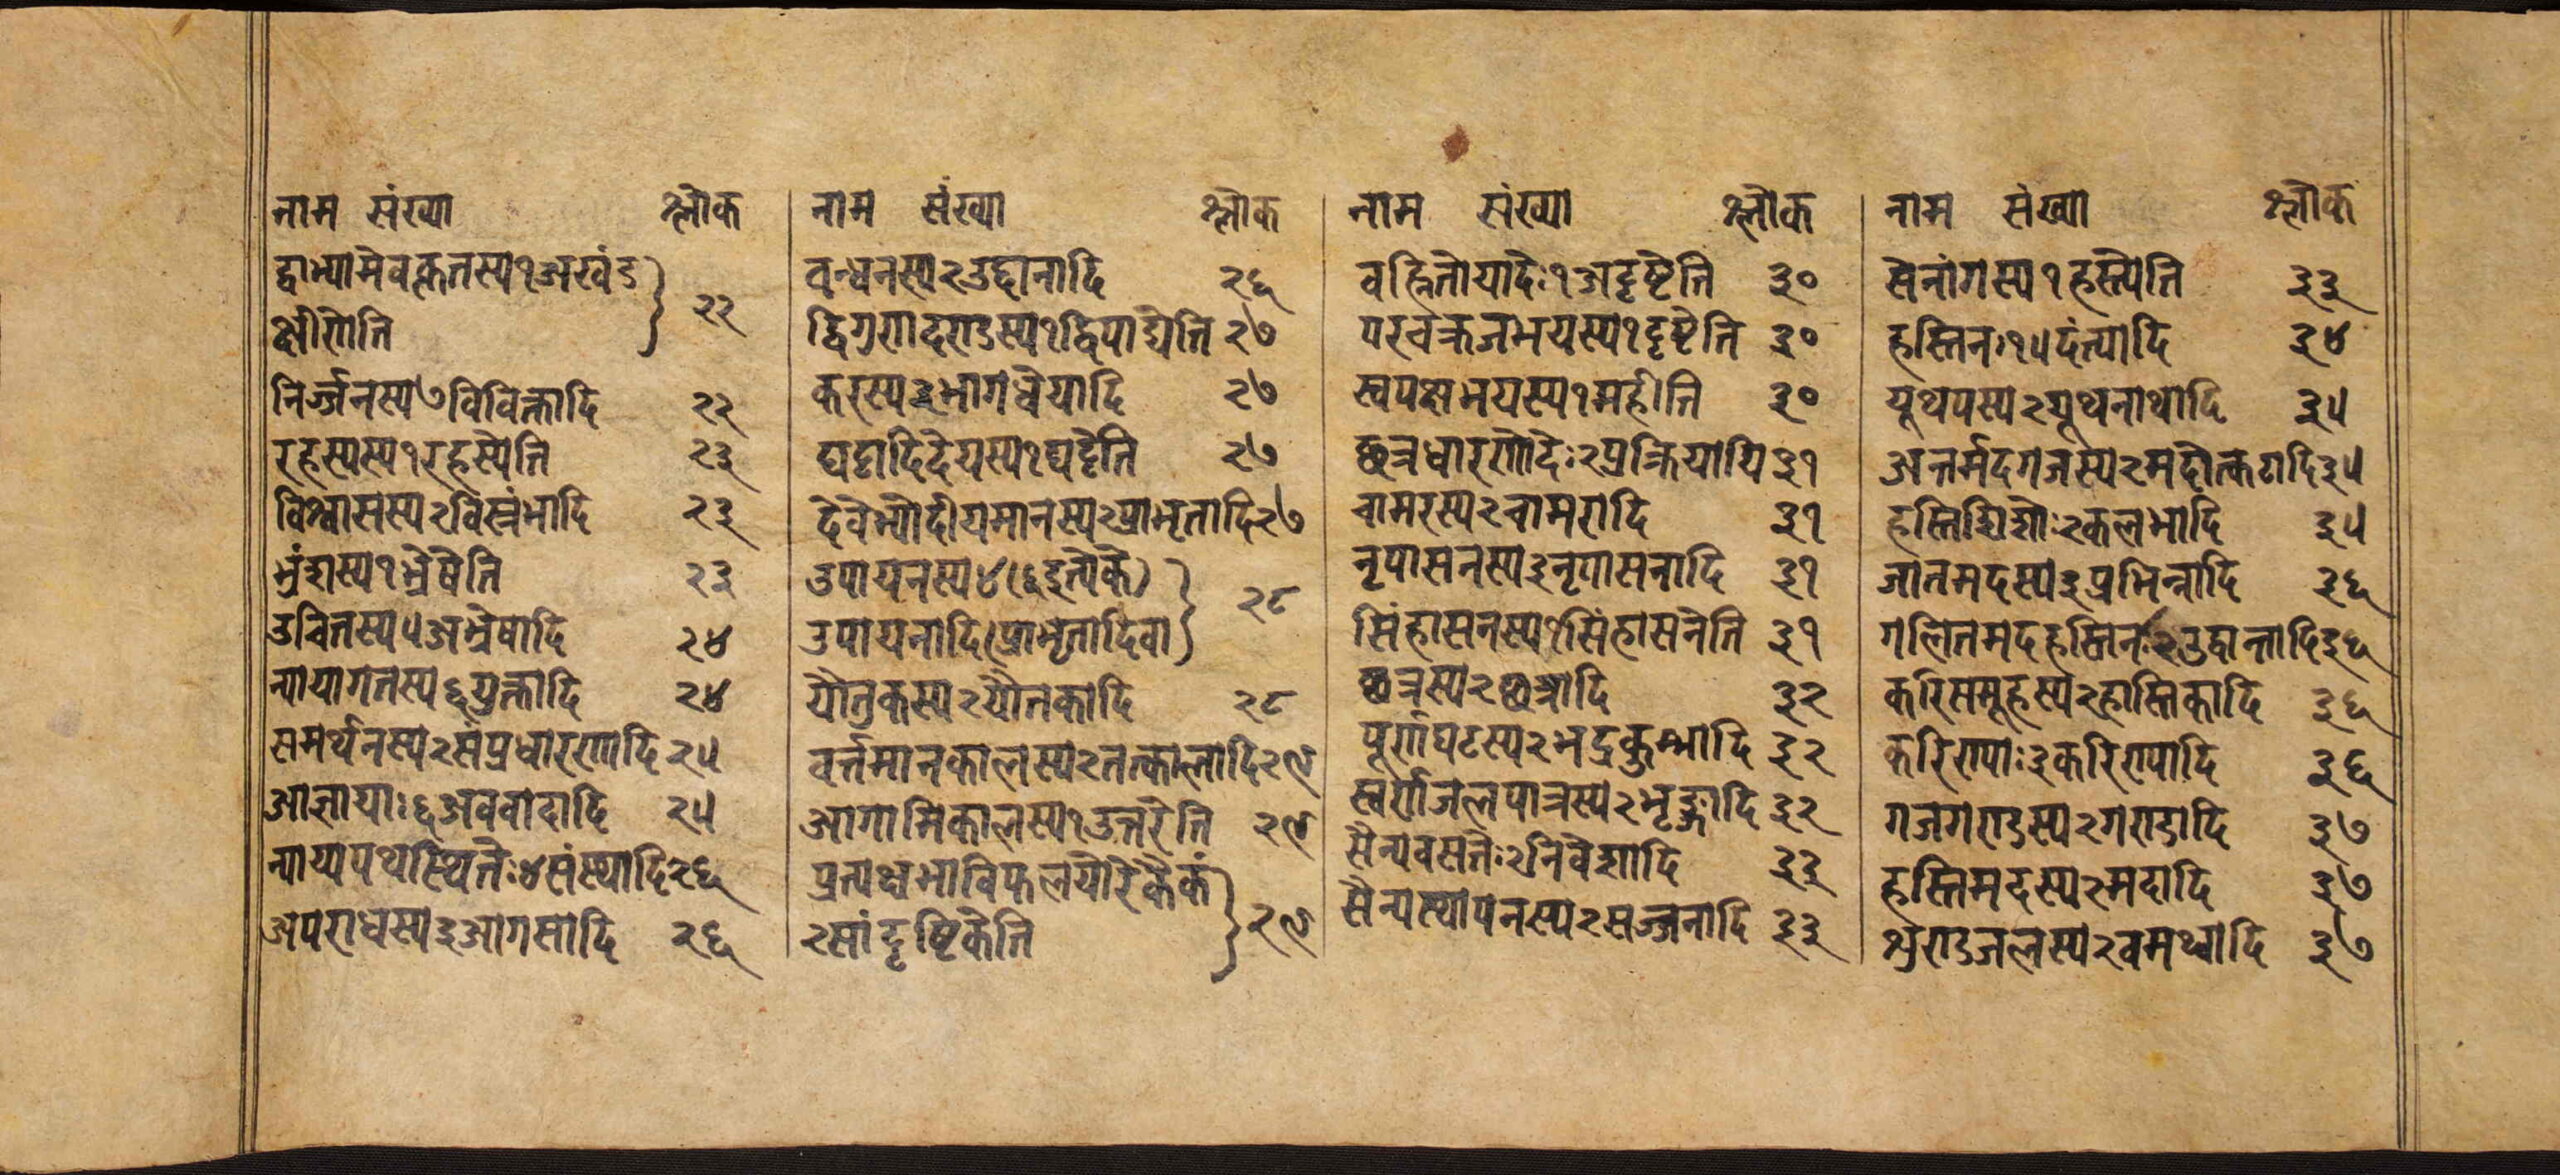 नाम संख्या श्लोक
द्वाभ्यामेवकृतस्य१अखंड
क्षीणेति २२
निर्ज्जनस्य७विविक्तादि २२
रहस्यस्य१रहस्येति २३
विश्वासस्य२विस्रंभादि २३
भ्रंशस्य१भ्रेषेति २३
उचितस्य५अभ्रेषादि २४
न्यायागतस्य६युक्तादि २४
समर्थनस्य२संप्रधारणादि २५
आज्ञायाः६अववादादि २५
न्याय्यपथस्थितेः४संस्थादि २६
अपराधस्य३आगसादि २६
नाम संख्या श्लोक
बन्धनस्य२उद्दानादि २६
द्विगुणदण्डस्य१द्विपाद्येति २७
करस्य३भागधेयादि २७
घट्टादिदेयस्य१घट्टेति २७
देवेभ्योदीयमानस्य२प्राभृतादि २७
उपायनस्य४(६इत्येके)
उपायनादि(प्राभृतादिवा २८
यौतुकस्य२यौतकादि २८
वर्त्तमानकालस्य२तत्कालादि २९
आगामिकालस्य१उत्तरेति २९
प्रत्यक्षभाविफलयोरेकैकं
२सांदृष्टिकेति २९
नाम संख्या श्लोक
वह्नितोयादेः१अदृष्टेति ३०
परचक्रजभयस्य१दृष्टेति ३०
स्वपक्षभयस्य१महीति ३०
छत्रधारणादेः२प्रक्रियायि ३१
चामरस्य२चामरादि ३१
नृपासनस्य३नृपासनादि ३१
सिंहासनस्य१सिंहासनेति ३१
छत्रस्य२छत्रादि ३२
पूर्णघटस्य२भद्रकुम्भादि ३२
स्वर्णजलपात्रस्य२भृङ्गादि ३२
सैन्यवसतेः२निवेशादि ३३
सैन्यस्थापनस्य२सज्जनादि ३३
नाम संख्या श्लोक
सेनांगस्य१हस्त्येति ३३
हस्तिनः१५दंत्यादि ३४
यूथपस्य२यूथनाथादि ३५
अन्तर्मदगजस्य२मदोत्कटादि ३५
हस्तिशिशोः२कलभादि ३५
जातमदस्य३प्रभिन्नादि ३६
गलितमदहस्तिनः२उद्वान्तादि ३६
करिसमूहस्य२हास्तिकादि ३६
करिण्याः३करिण्यादि ३६
गजगण्डस्य२गण्डादि ३७
हस्तिमदस्य२मदादि ३७
शुण्डजलस्य२वमथ्वादि ३७